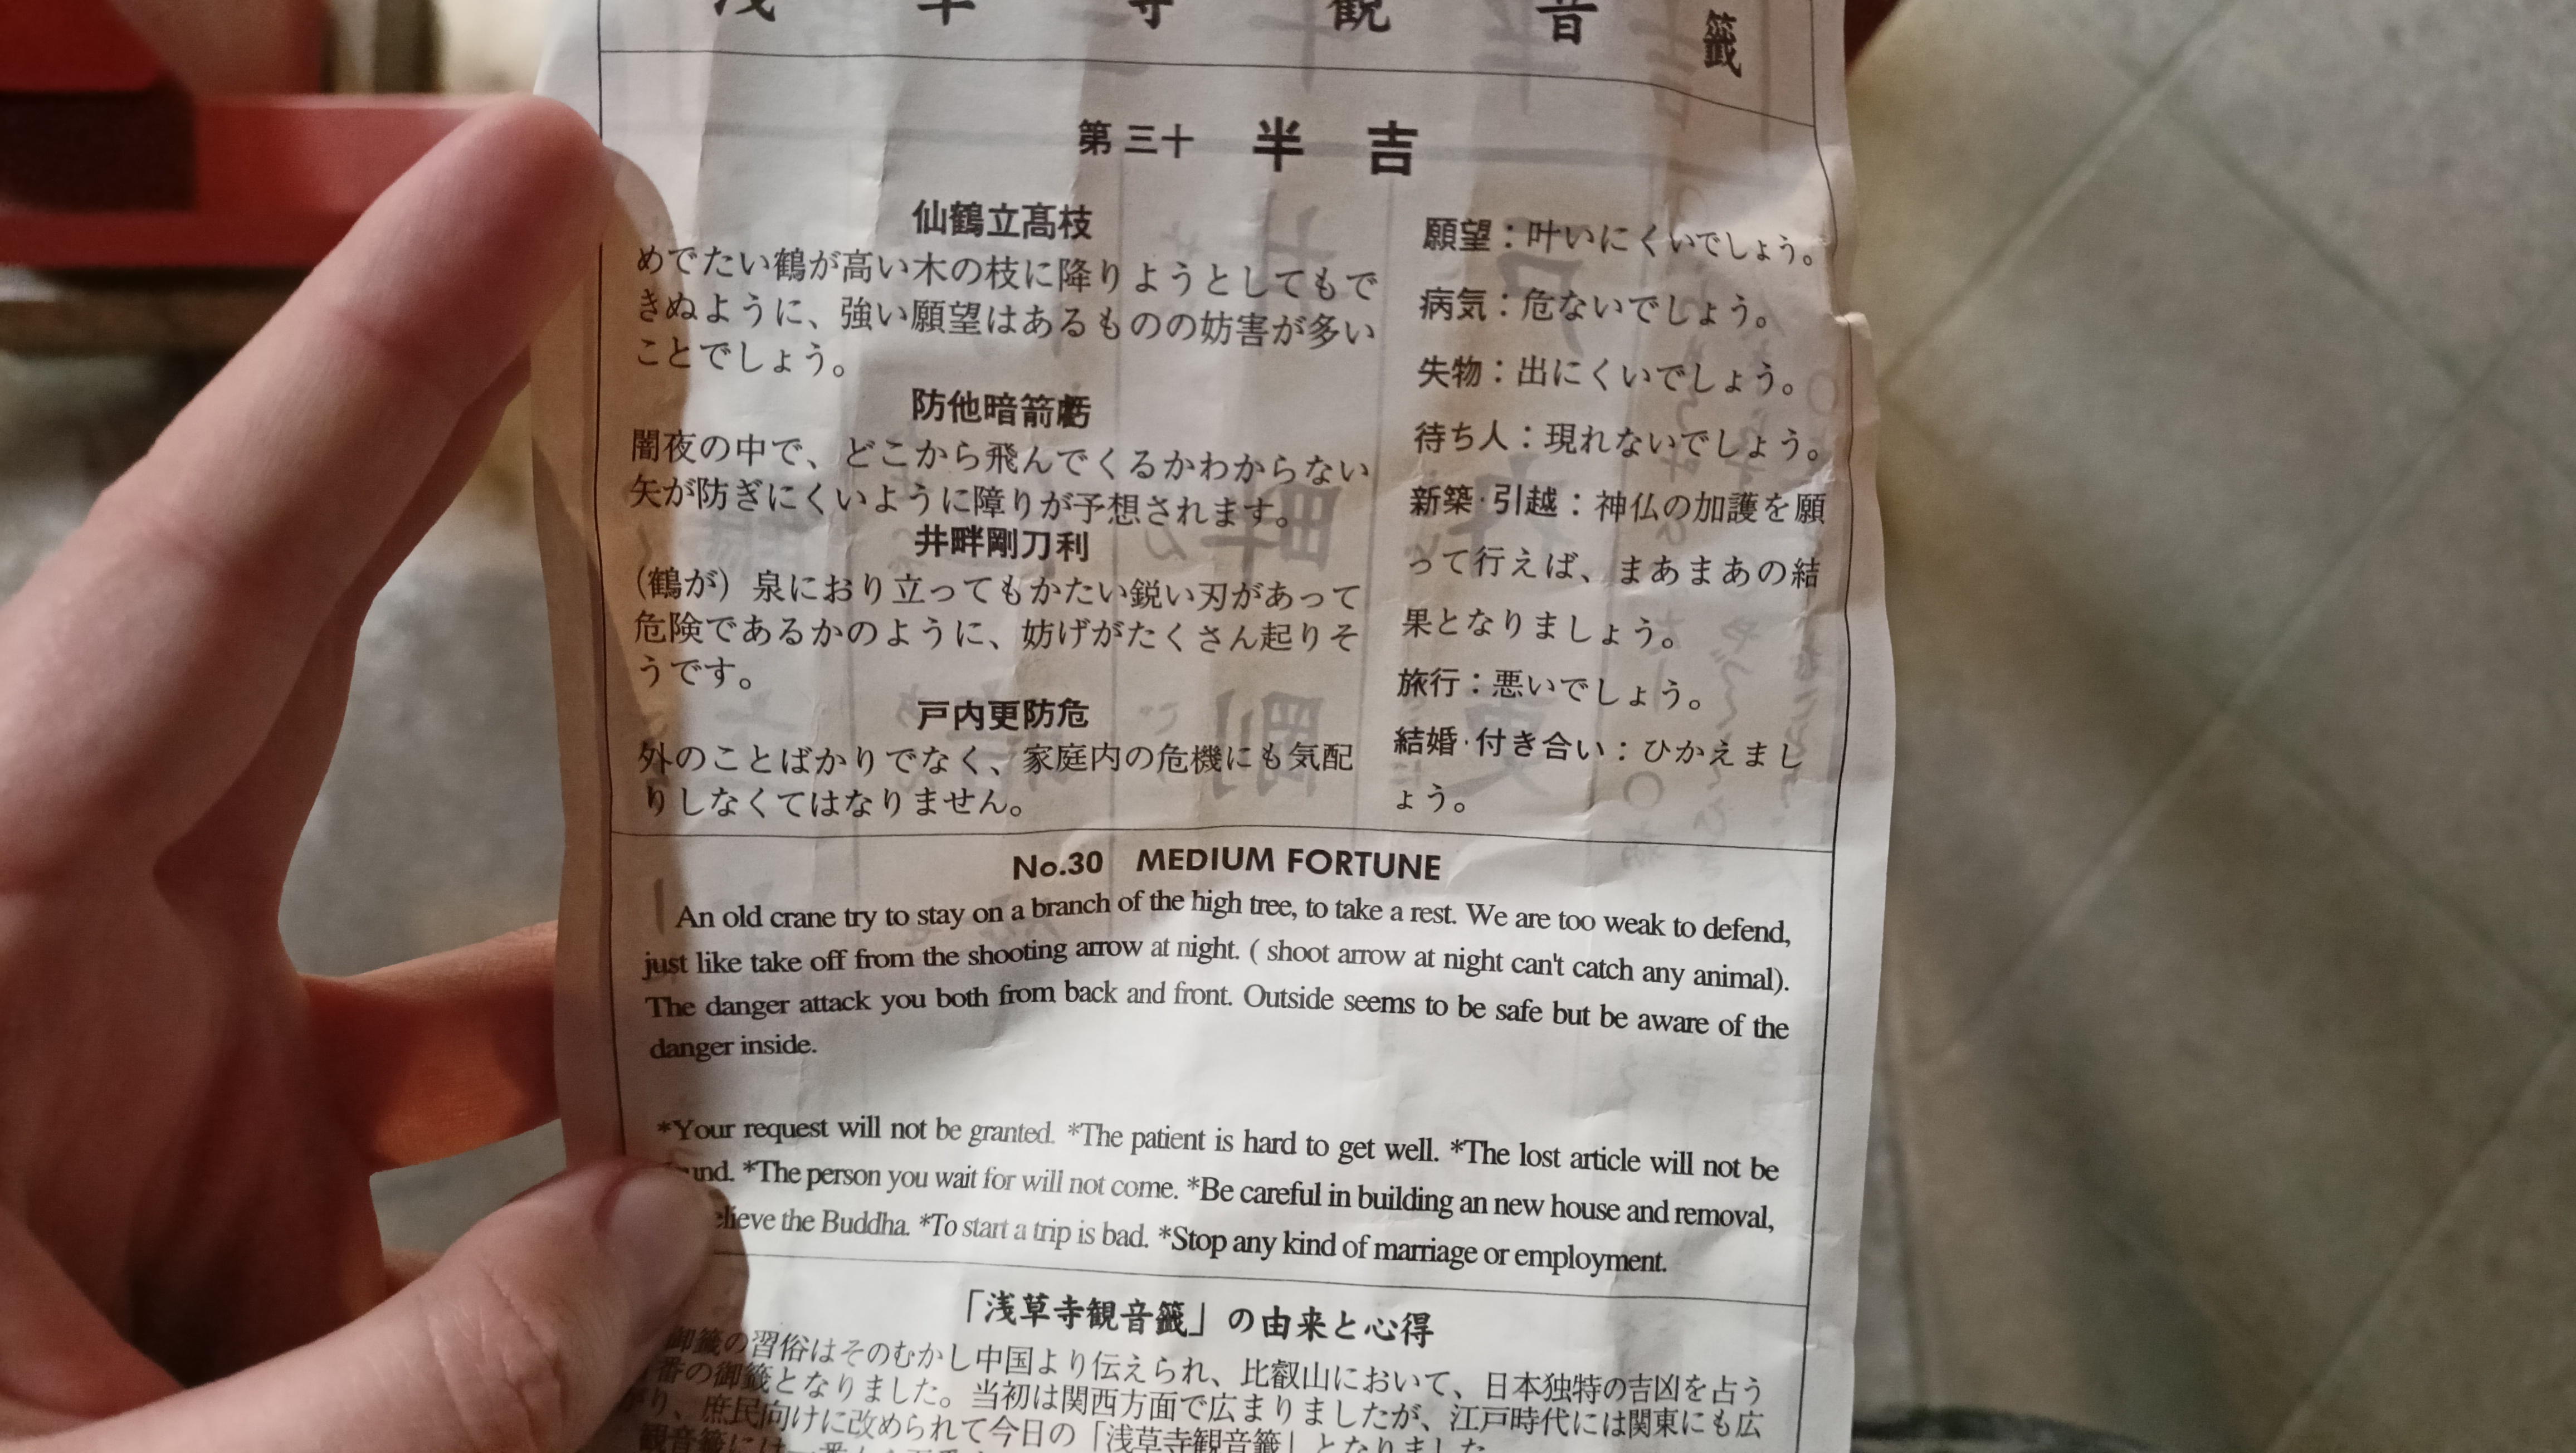 浅草寺観音籤
第三十 半吉
仙鶴立高枝
めでたい鶴が高い木の枝に降りようとしてもで
きぬように、強い願望はあるものの妨害が多い
ことでしょう。
防他暗箭虧
闇夜の中で、どこから飛んでくるかわからない
矢が防ぎにくいように障りが予想されます。
井畔剛刀利
(鶴が) 泉におり立ってもかたい鋭い刃があって
危険であるかのように、妨げがたくさん起りそ
うです。
戸内更防危
外のことばかりでなく、家庭内の危機にも気配
りしなくてはなりません。
願望:叶いにくいでしょう。
病気:危ないでしょう。
失物:出にくいでしょう。
待ち人:現れないでしょう。
新築·引越:神仏の加護を願
って行えば、まあまあの結
果となりましょう。
旅行:悪いでしょう。
結婚·付き合い:ひかえまし
ょう。
No.30 MEDIUM FORTUNE
An old crane try to stay on a branch of the high tree, to take a rest. We are too weak to defend,
just like take off from the shooting arrow at night. ( shoot arrow at night can't catch any animal).
The danger attack you both from back and front. Outside seems to be safe but be aware of the
danger inside.
*Your request will not be granted. *The patient is hard to get well. *The lost article will not be
*The person you wait for will not come. *Be careful in building an new house and removal,
the Buddha. *To start a trip is bad. *Stop any kind of marriage or employment.
「浅草寺観音籤」の由来と心得
御籤の習俗はそのむかし中国より伝えられ、比叡山において、日本独特の吉凶を占う
番の御籤となりました。当初は関西方面で広まりましたが、江戸時代には関東にも広
り、庶民向けに改められて今日の「浅草寺観音籤」となりました
観音籤には